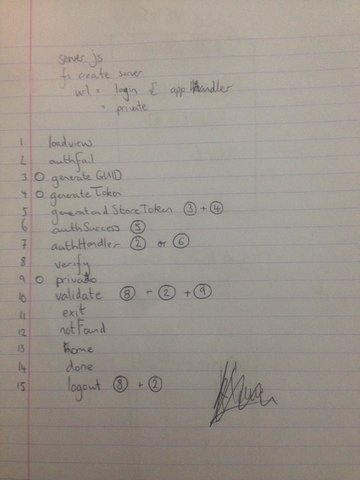 server.js
fs create server
url = login & app Handler
= private
1 loadview
2 authFail
3 generate GUID
4 generate Token
5 generateandStoreToken ③ + ④
6 authSuccess ⑤
7 authHandler ② or ⑥
8 verify
9 privado
10 validate ⑧ + ② + ⑨
11 exit
12 notFound
13 home
14 done
15 logout ⑧ + ②